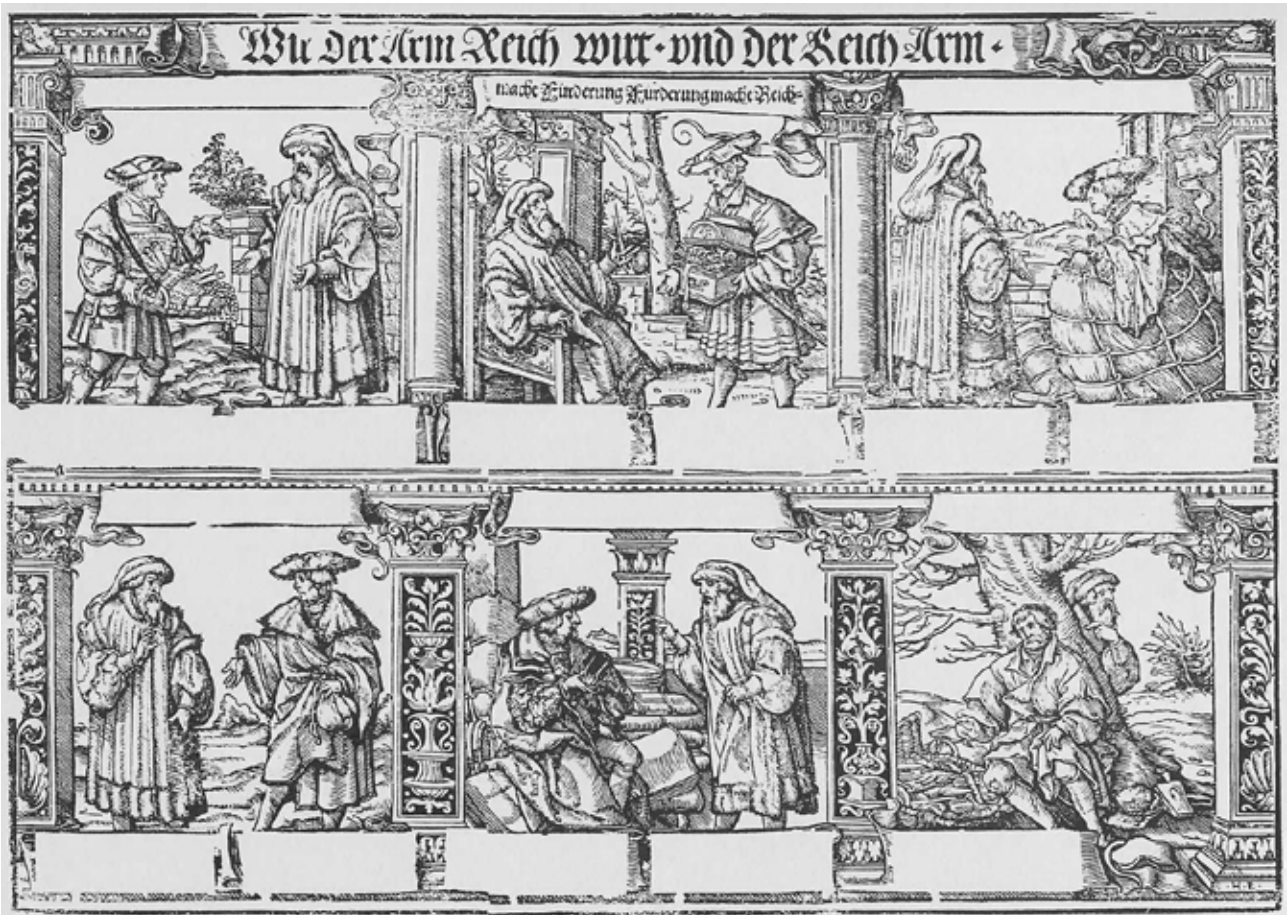 Wie Der Arm Reich wirt · vnd Der Reich Arm ·
mache Fürderung Fürderung mache Reich-